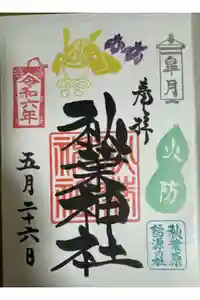 皐月
奉拝
火防
秋葉神社
秋葉原
語源の社
令和六年
五月二十六日